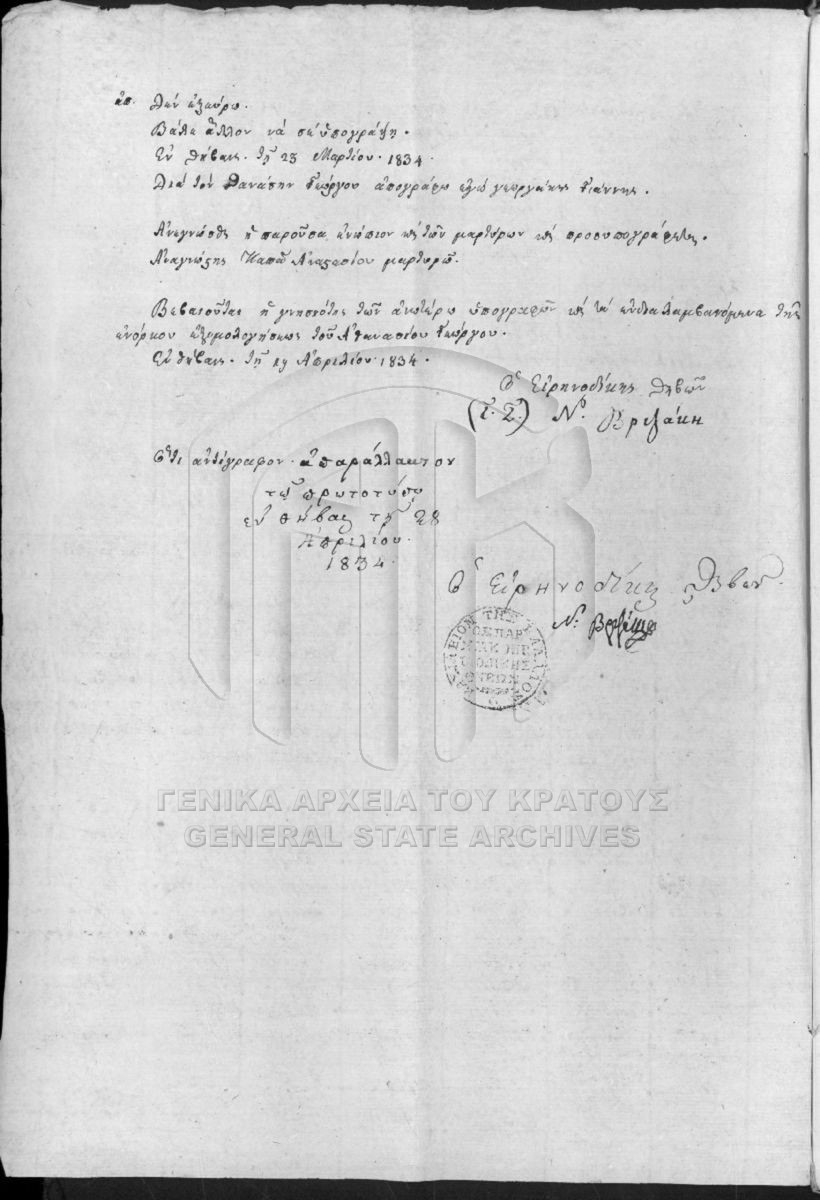 ἀπ. Δὲν ἠξεύρω.
Βάλε ἄλλον νὰ σὲ ὑπογράψῃ.
Ἐν Θήβαις. τῇ 23 Μαρτίου. 1834.
Διὰ τὸν Θανάσην Γεώργου ἀπογράφω ἐγὼ γεωργάκης Γιάννης.
Ἀνεγνώσθη ἡ παροῦσα ἐνώπιον καὶ τῶν μαρτύρων καὶ προσυπογράφεται.
Ἀναγνώστης Παπᾶ Ἀναστασίου μαρτυρῶ.
Βεβαιοῦται ἡ γνησιότης τῶν ἀνωτέρω ὑπογραφῶν καὶ τὰ ἐνδιαλαμβανόμενα τῆς
ἐνόρκου ἐξομολογήσεως τοῦ Ἀθανασίου Γεώργου.
Ἐν Θήβαις. τῇ Ἀπριλίου. 1834.
Ὁ Εἰρηνοδίκης Θηβῶν
(Τ. Σ.) Ν. Βριζάκη
Ὅτι ἀντίγραφον ἀπαράλλακτον
τοῦ πρωτοτύπου
ἐν Θήβαις τῇ 28
Ἀπριλίου.
1834.
Ὁ Εἰρηνοδίκης Θηβῶν.
Ν. Βριζάκης
ΓΕΝΙΚΑ ΑΡΧΕΙΑ ΤΟΥ ΚΡΑΤΟΥΣ
GENERAL STATE ARCHIVES